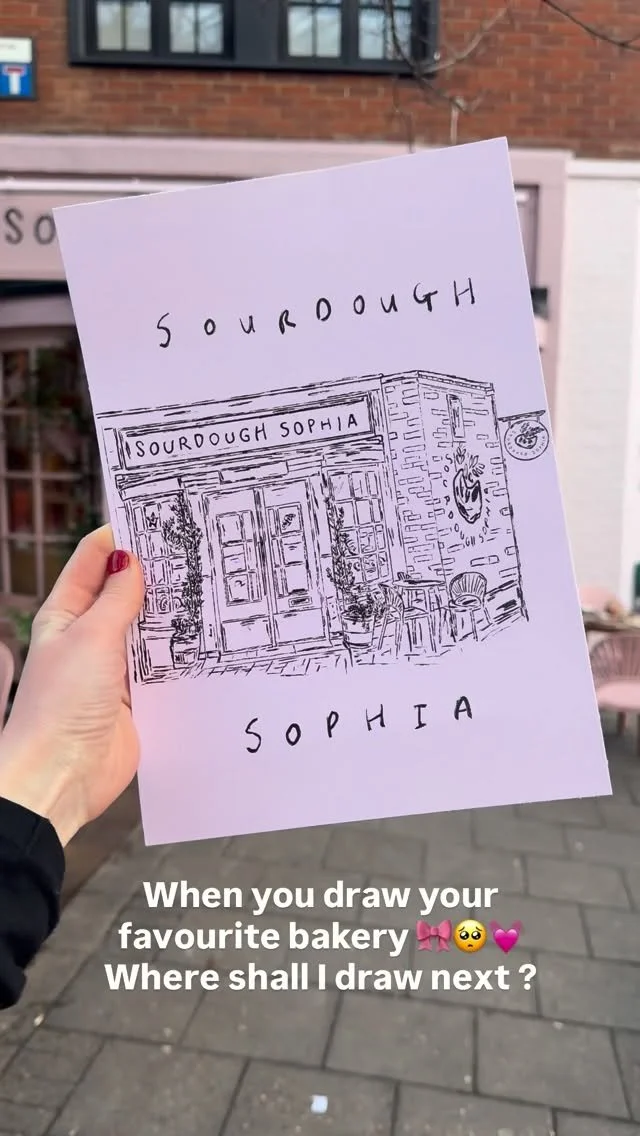 SO
SOURDOUGH
SOURDOUGH SOPHIA
SOPHIA
When you draw your
favourite bakery 🎀🥺💓
Where shall I draw next ?